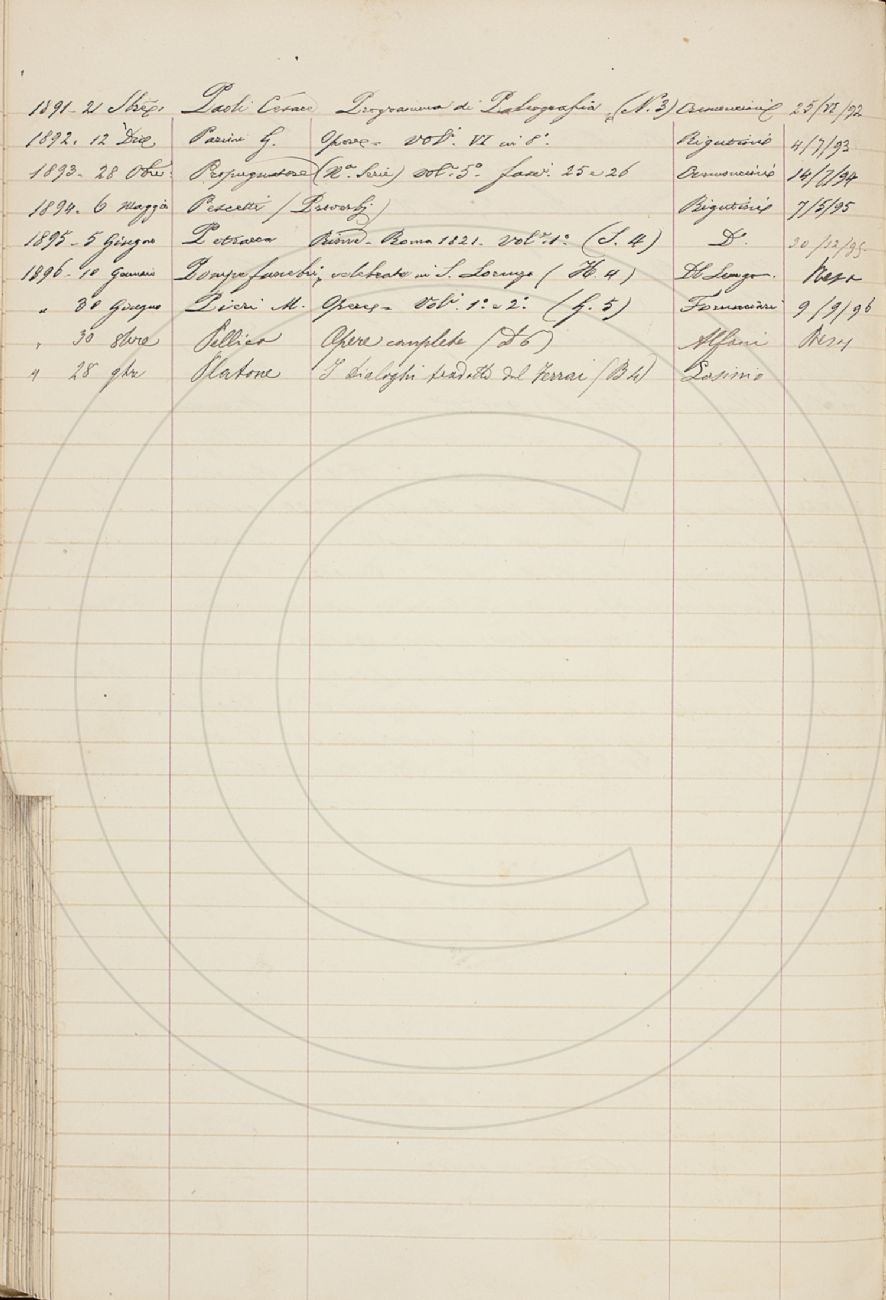 1891 - 21 Paoli Cesare Programma di Paleografia (N. 3) 25/VI/92
1892. 12 Dice Parini G. Opere - Vol. VI in 8°. Rigutini 4/7/93
1893 - 28 Obre: Propugnatore (Na. Serie) vol. 5° fasci. 25 e 26 14/7/94
1894 - 6 Maggio Pescetti / Proverbj Rigutini 7/5/95
1895 - 5 Giugno Petrarca Rime - Roma 1821 - Vol. 1° (S. 4) Do. 20/12/95
1896 - 10 Gennaio Pompe funebri celebrate in S. Lorenzo (H. 4) Del Lungo. Reso
" 30 Giugno Pieri M. Opere - Voli. 1° e 2° (G. 5) Fornaciari 9/9/96
" 30 8bre Pellico Opere complete (D 6) Alfani Reso
" 28 9bre Platone I dialoghi tradotti dal Ferrai (B 4) Lasinio